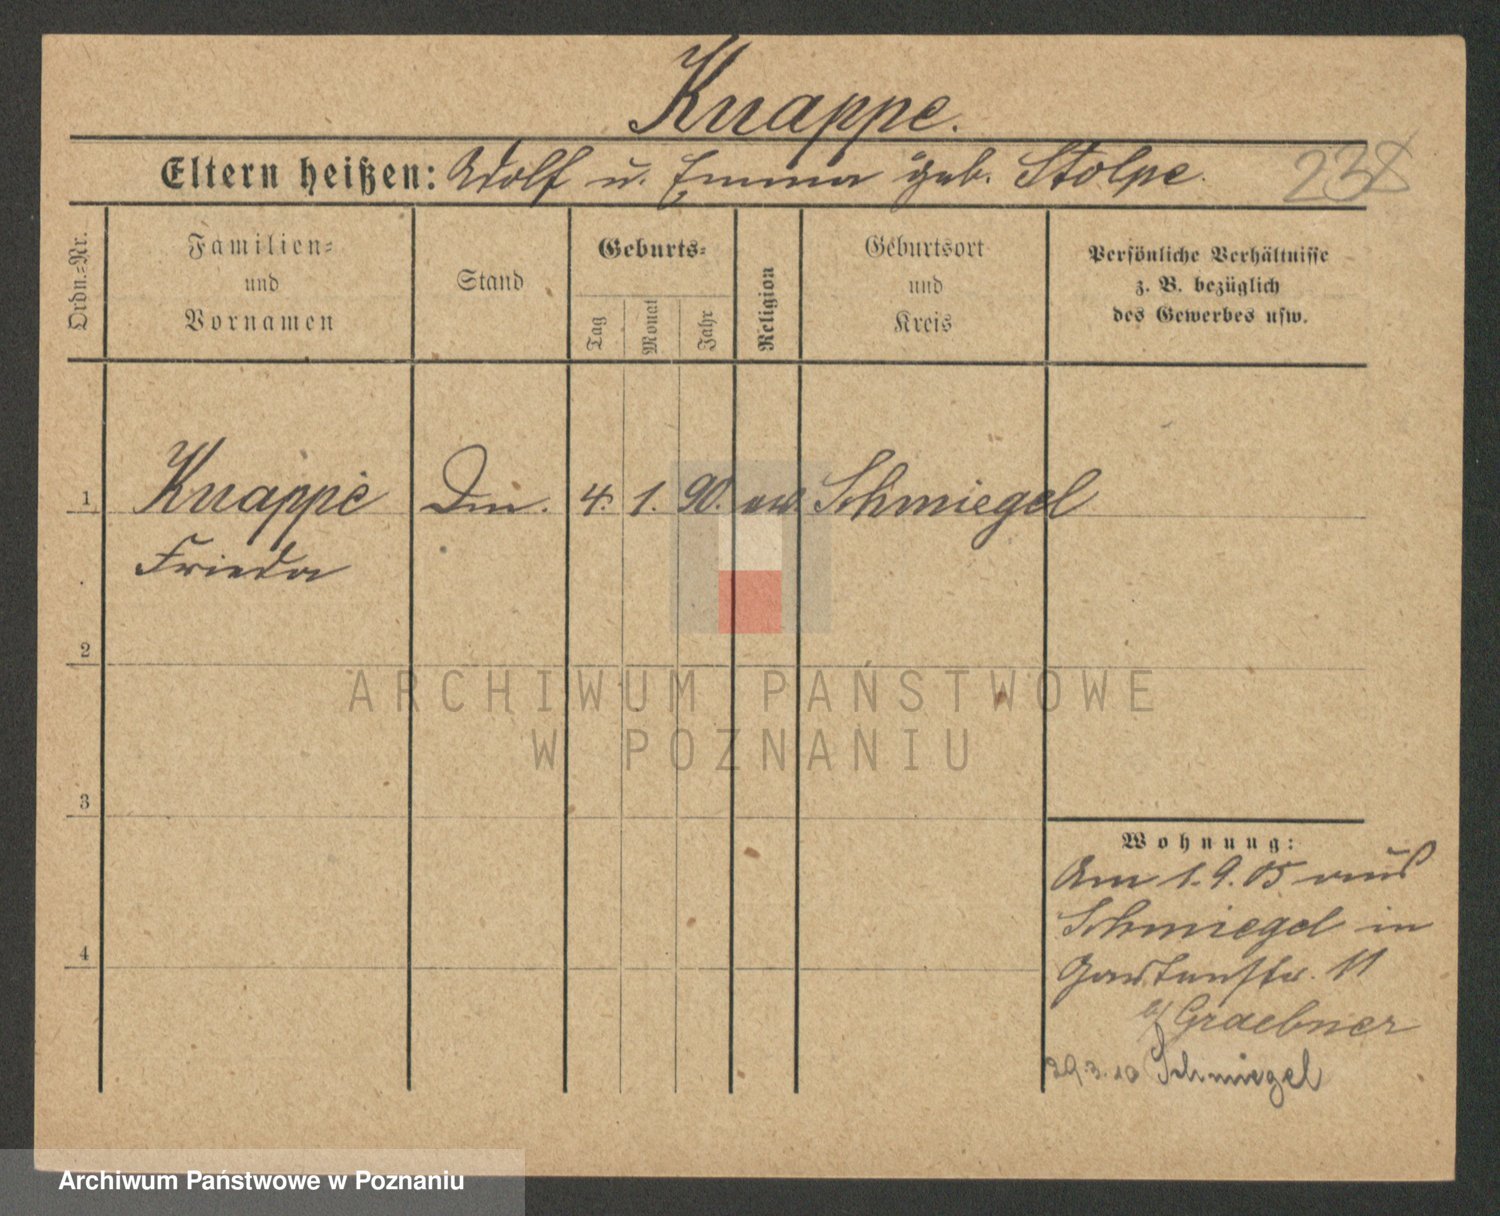 Knappe.
Eltern heißen: Adolf u. Emma geb. Stolpe.
238
Ordn.=Nr.
Familien=
und
Vornamen
Stand
Geburts=
Tag
Monat
Jahr
Religion
Geburtsort
und
Kreis
Persönliche Verhältnisse
z. B. bezüglich
des Gewerbes usw.
1
Knappe
4. 1. 90. Schmiegel
Frieda
2
3
4
ARCHIWUM PAŃSTWOWE
W POZNANIU
Wohnung:
Am 1.9.05 aus
Schmiegel in
Gartenstr. 11
b/ Graebner
29.3.10 Schmiegel
Archiwum Państwowe w Poznaniu